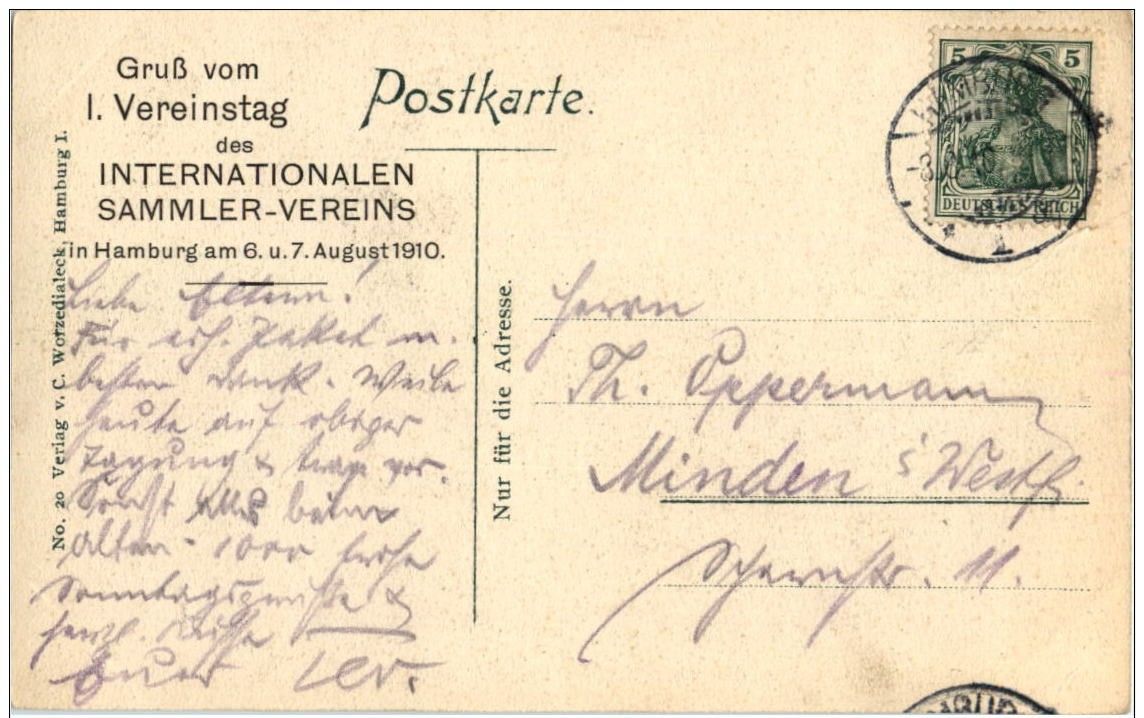 Gruß vom
I. Vereinstag
des
INTERNATIONALEN
SAMMLER-VEREINS
in Hamburg am 6. u. 7. August 1910.
No. 20 Verlag v. C. Worzedialeck, Hamburg I.
Liebe Eltern!
Für ech. Paket m.
besten Dank. Weile
heute auf obiger
Tagung & trage vor.
Sonst alles beim
Alten. 1000 frohe
Sonntagsgrüße &
herzl. Küsse
Euer
Postkarte.
Nur für die Adresse.
5 5
DEUTSCHES REICH
HAMBURG
1
Herrn
Th. Oppermann
Minden i/Westf.
11.